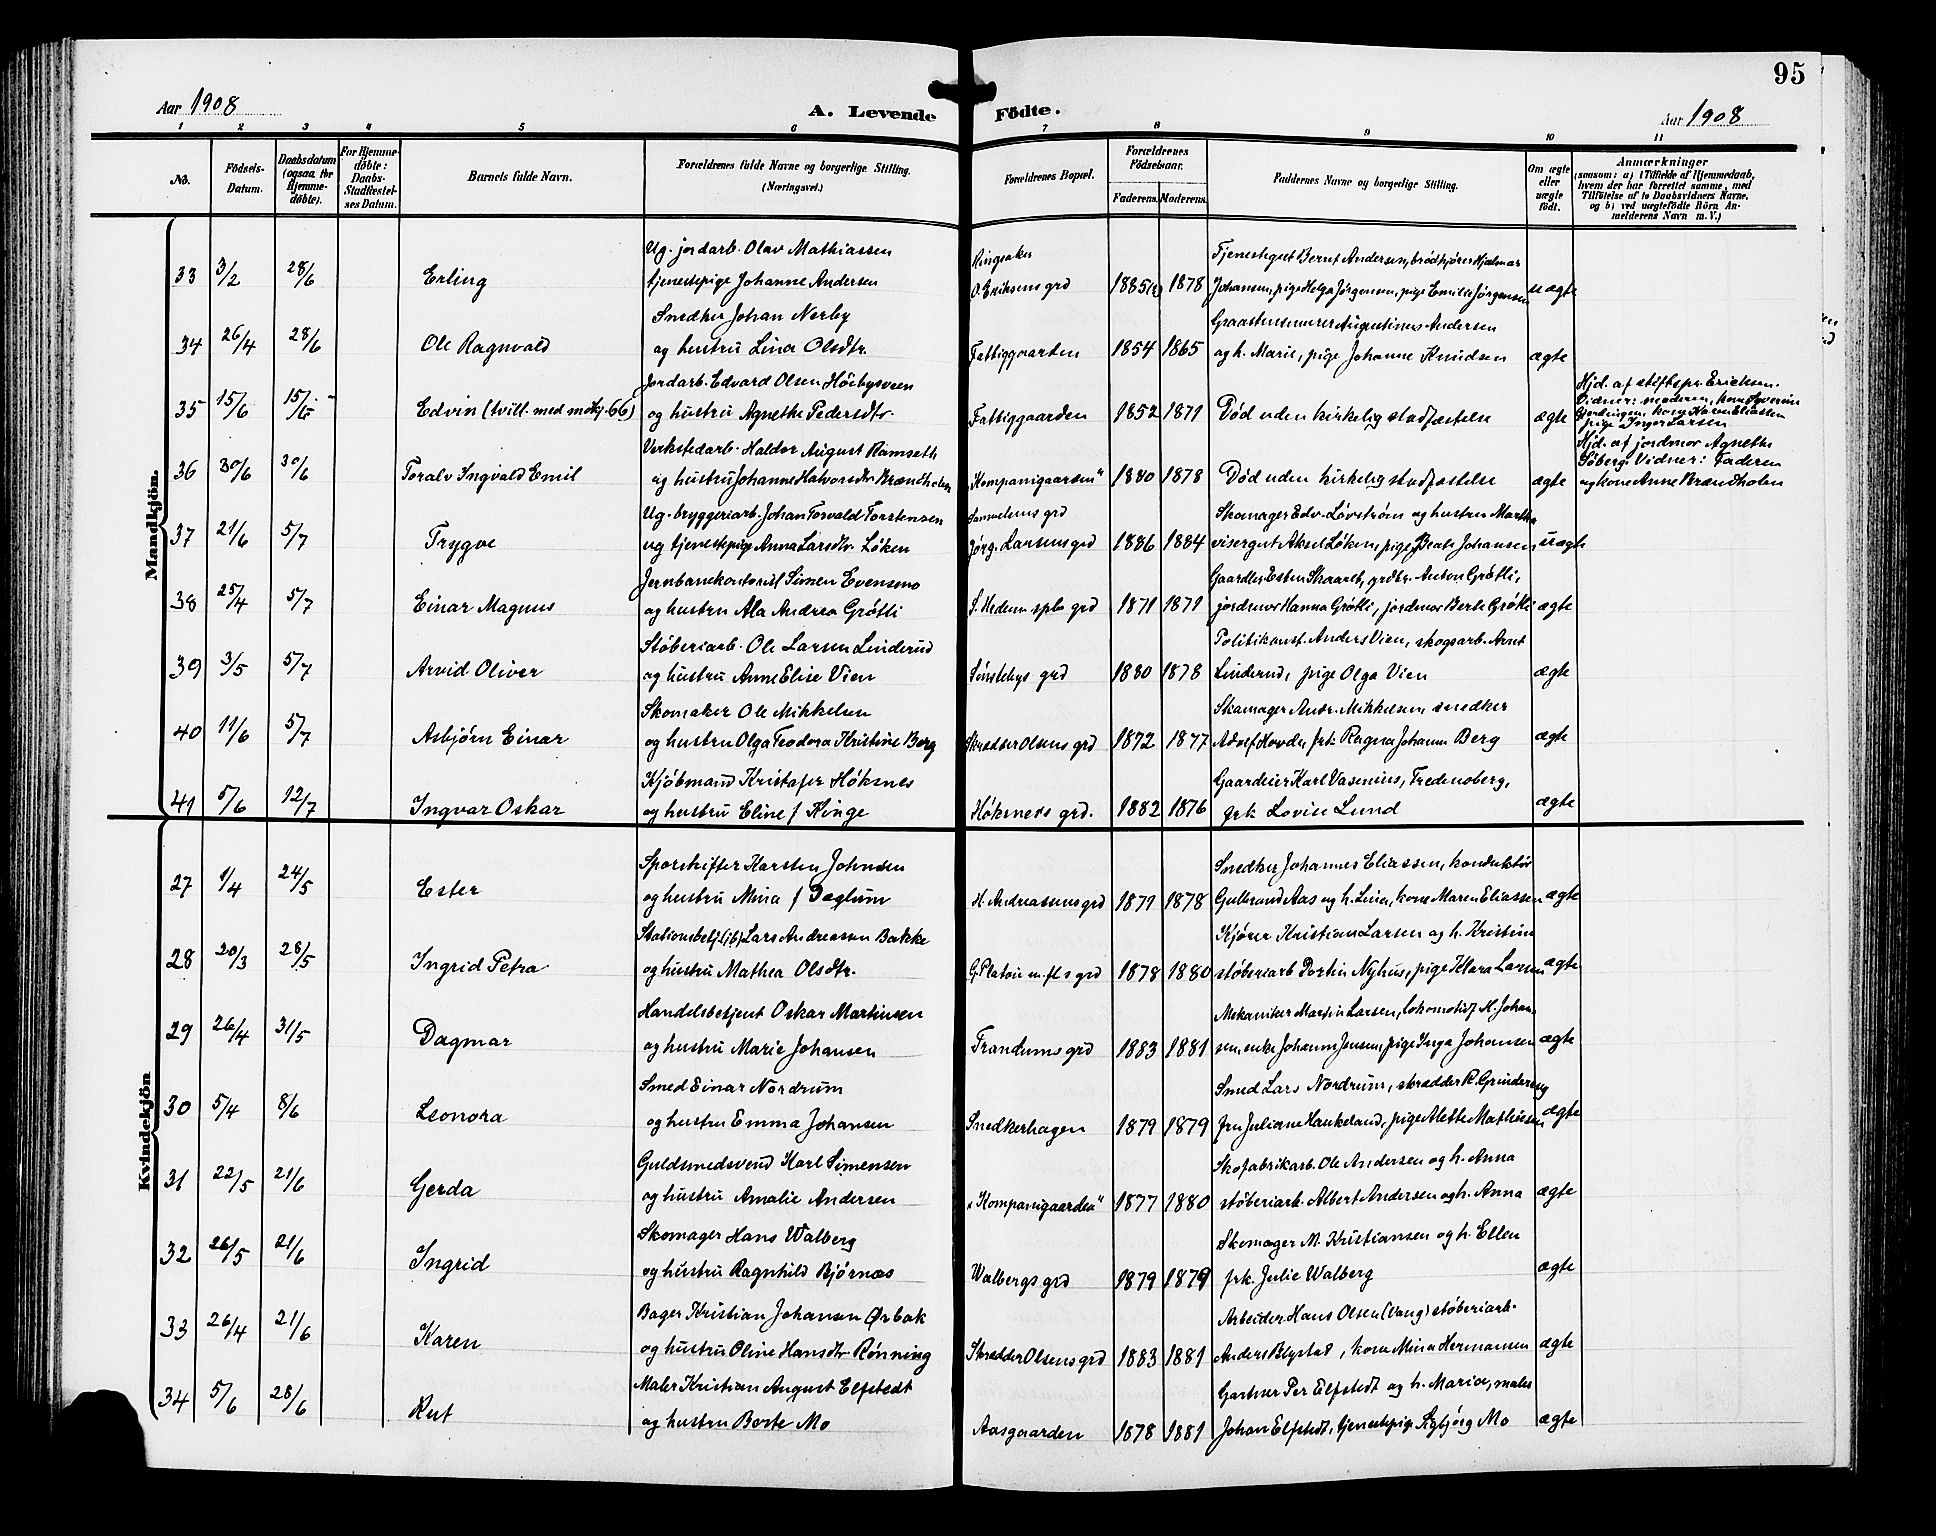 95
Aar 1908
A. Levende Födte.
Aar 1908
1 2 3 4 5 6 7 8 9 10 11
No.
Födsels-Datum.
Daabsdatum (ogsaa for Hjemmedøbte).
For Hjemmedøbte: Daabs-Stadfæstelses Datum.
Barnets fulde Navn.
Forældrenes fulde Navne og borgerlige Stilling. (Næringsvei.)
Forældrenes Bopæl.
Forældrenes Födselsaar.
Faderens. Moderens.
Faddernes Navne og borgerlige Stilling.
Om ægte eller uægte født.
Anmærkninger
(saasom: a) i Tilfælde af Hjemmedaab, hvem der har forrettet samme, med Tilføielse af to Daabsvidners Navne, og b) ved uægtefødte Börn Anmelderens Navn m. V.)
Mandkjön.
Ug. jordarb. Olav Mathiassen Ringsaker Tjenestegut Bernt Andersen, brødkjører Hjalmar
33 3/2 28/6 Erling tjenestepige Johanne Andersen O. Eriksens grd 1885 1878 Johansen, pige Helga Jørgensen, pige Emilie Jørgensen uægte
Snedker Johan Nerby Graastensmurer Augustinus Andersen
34 26/4 28/6 Ole Ragnvald og hustru Lina Olsdtr. Fattiggaarden 1854 1865 og h. Marie, pige Johanne Knudsen ægte
Jordarb. Edvard Olsen Höibysveen Hjd. af stiftspr. Ericksen.
35 15/6 15/6 Edvin (tvill. med mdkj. 66) og hustru Agnethe Pedersdtr. Fattiggaarden 1852 1871 Død uden kirkelig stadfæstelse ægte Vidner: moderen, kone Syverine
kone Karen Eliassen
pige Inger Larsen
Verkstedarb. Haldor August Ramseth Hjd. af jordmor Agnethe
36 30/6 30/6 Toralv Ingvald Emil og hustru Johanne Halvorsdtr. Brændholen "Kompanigaarden" 1880 1878 Død uden kirkelig stadfæstelse ægte Söberg. Vidner: Faderen
og kone Anne Brændholen
Ug. bryggeriarb. Johan Torvald Torstensen Samuelsens grd Skomager Edv. Lövström og hustru Martha
37 21/6 5/7 Trygve og tjenestepige Anna Larsdtr. Löken Jörg. Larsens grd 1886 1884 visergut Aksel Löken, pige Beate Johansen uægte
Jernbanekontorist Simen Evensmo Gaardbr. Esten Skaaret, grdbr. Anton Grötli,
38 25/4 5/7 Einar Magnus og hustru Ala Andrea Grötli S. Hedem. spb. grd 1871 1871 jordmor Hanna Grötli, jordmor Berte Grötli ægte
Støberiarb. Ole Larsen Linderud Politikonst. Anders Vien, skogsarb. Arnt
39 3/5 5/7 Arvid Oliver og hustru Anne Elise Vien Sönstebys grd 1880 1878 Linderud, pige Olga Vien ægte
Skomaker Ole Mikkelsen Skomager Andr. Mikkelsen, snedker
40 11/6 5/7 Asbjørn Einar og hustru Olga Teodora Kristine Berg Skrædder Olsens grd 1872 1877 Adolf Hovde, frk. Ragna Johanne Berg ægte
Kjöbmand Kristofer Höksnes Gaardeier Karl Vasenius, Tredenoberg,
41 5/6 12/7 Ingvar Oskar og hustru Eline f. Kinge Höksnes grd. 1882 1876 frk. Lovise Lund ægte
Kvindekjön
Sporskifter Karsten Johnsen Snedker Johannes Eliassen, konduktör
27 1/4 24/5 Ester og hustru Mina f. Daglum H. Andreasens grd 1871 1878 Gulbrand Aas og h. Lina, kone Maren Eliassen ægte
Stationsbetj. (jb) Lars Andreassen Bakke Kjører Kristian Larsen og h. Kristine
28 20/3 28/5 Ingrid Petra og hustru Mathea Olsdtr. G. Platou m. fl s grd 1878 1880 støberiarb. Nyhus, pige Klara Larsen ægte
Handelsbetjent Oskar Martinsen Mekaniker Martin Larsen, lokomotivf. H. Johan-
29 26/4 31/5 Dagmar og hustru Marie Johansen Trandums grd 1883 1881 sen, enke Johanne Jensen, pige Inga Johansen ægte
Smed Einar Nordrum Smed Lars Nordrum, skrædder R. Grundeng
30 5/4 8/6 Leonora og hustru Emma Johansen Snedkerhagen 1879 1879 fru Juliane Haukeland, pige Alette Mathisen ægte
Guldsmedsvend Karl Simensen Skofabrikarb. Ole Andersen og h. Anna
31 22/5 21/6 Gerda og hustru Amalie Andersen "Kompanigaarden" 1877 1880 støberiarb. Albert Andersen og h. Anna ægte
Skomager Hans Walberg Skomager M. Kristiansen og h. Ellen
32 26/5 21/6 Ingrid og hustru Ragnhild Bjørnæs Walbergs grd 1879 1879 frk. Julie Walberg ægte
Bager Kristian Johansen Ørbak Arbeider Hans Olsen (Vang) støberiarb.
33 26/4 21/6 Karen og hustru Oline Hansdtr. Rønning Skrædder Olsens grd 1883 1881 Anders Blystad, kone Mina Hermansen ægte
Maler Kristian August Elfstedt Gartner Per Elfstedt og h. Maria, maler
34 5/6 28/6 Rut og hustru Borte Mo Aasgaarden 1878 1881 Johan Elfstedt, tjenestepige Sigbjörg Mo ægte